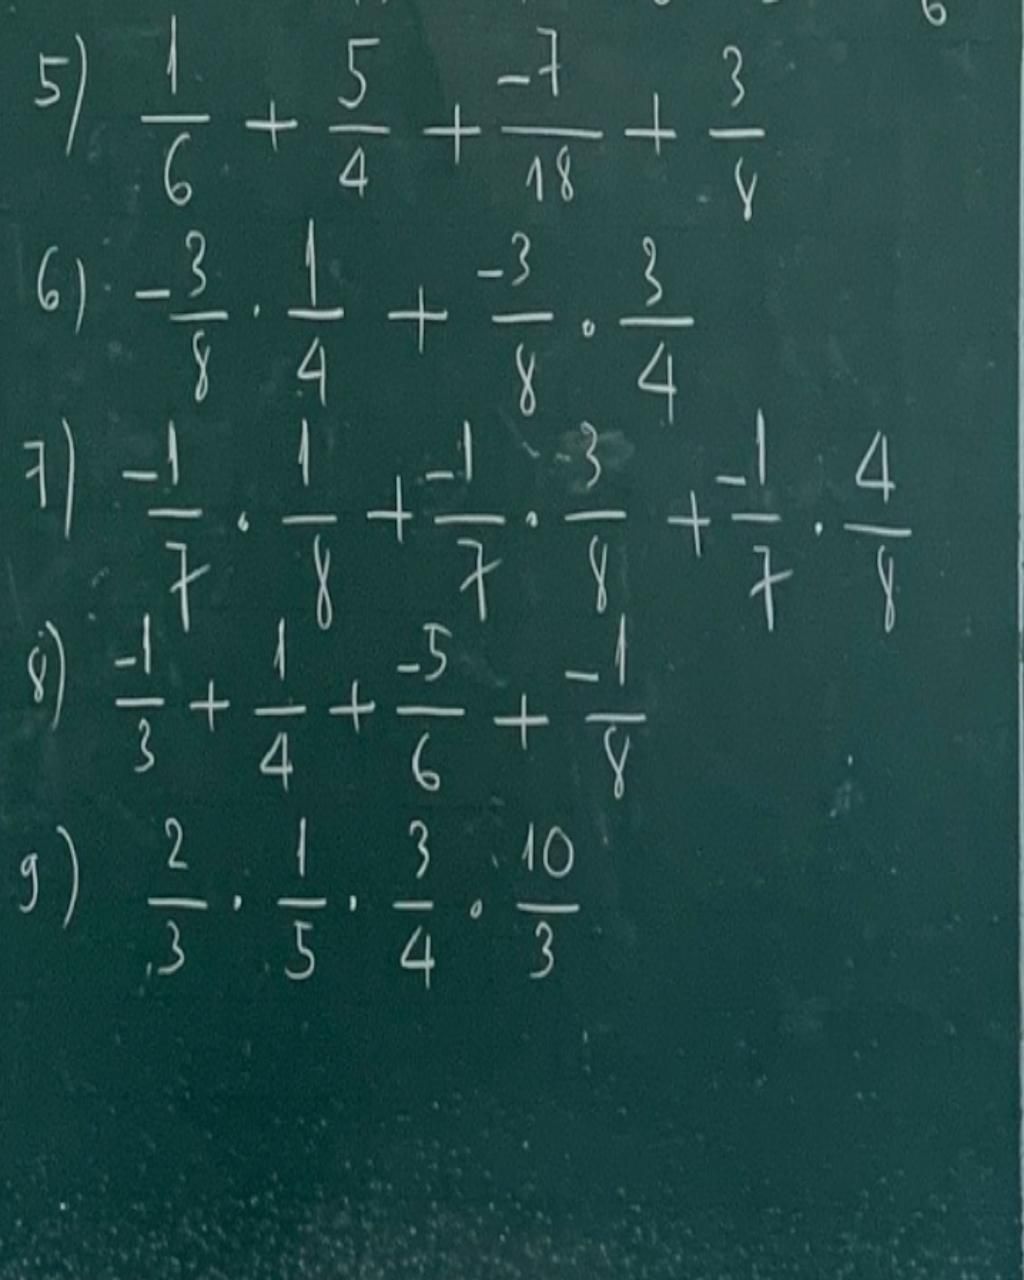 5) 1/6 + 5/4 + -7/18 + 3/8
6) -3/8 . 1/4 + -3/8 . 3/4
7) -1/7 . 1/8 + -1/7 . 3/8 + -1/7 . 4/8
8) -1/3 + 1/4 + -5/6 + -1/8
9) 2/3 . 1/5 . 3/4 . 10/3